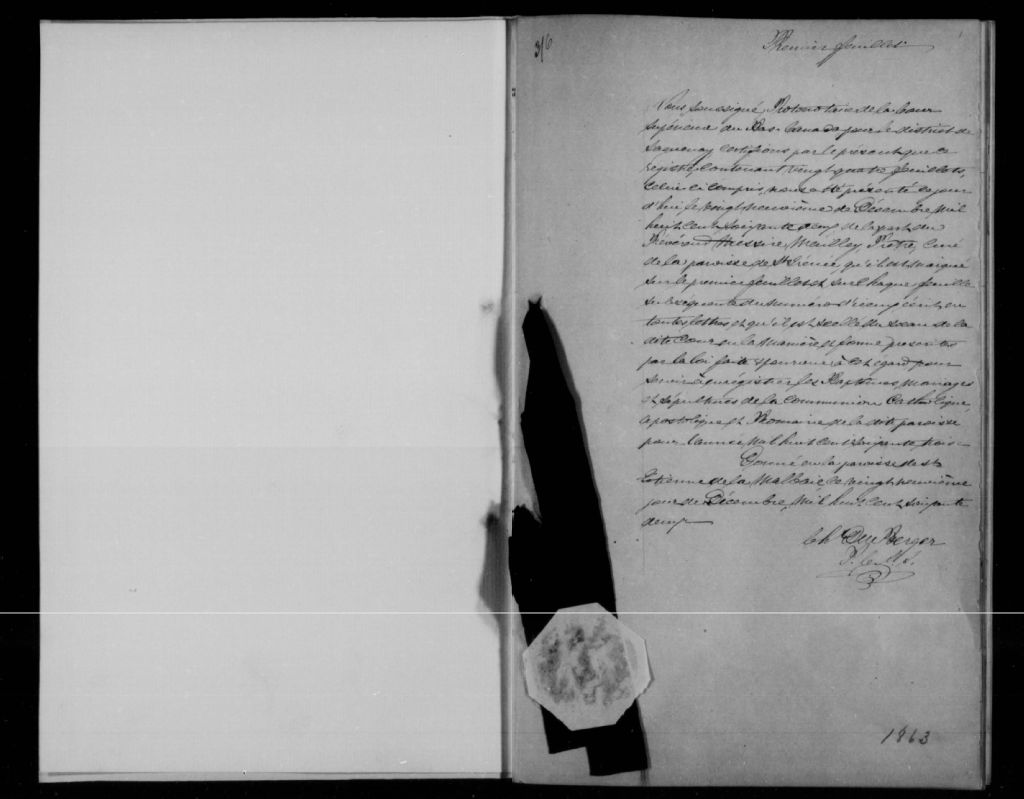 316
Premier feuillet
Nous soussigné Protonotaire de la Cour
Supérieure du Bas-Canada pour le district de
Saguenay certifions par le présent que ce
registre contenant vingt quatre feuillets,
celui ci compris, nous a été présenté ce jour
d'hui le vingt neuvième de Décembre Mil
huit cent soixante deux de la part du
Révérend Messire Mailley Prêtre, curé
de la paroisse de St Irénée, qu'il est marqué
sur le premier feuillet et sur chaque feuillet
subséquent du numéro d'iceux écrit en
toutes lettres et qu'il est scellé du sceau de la
dite Cour en la manière et forme prescrites
par la loi faite et pourvue à cet égard pour
servir à enrégistrer les Baptêmes Mariages
et sépultures de la communion Catholique,
apostolique et Romaine de la dite paroisse
pour l'année Mil huit cent soixante trois
Donné en la paroisse de St
Etienne de la Malbaie ce vingt neuvième
jour de Décembre, Mil huit cent soixante
deux
Chs Du Berger
P. C. S.
1863